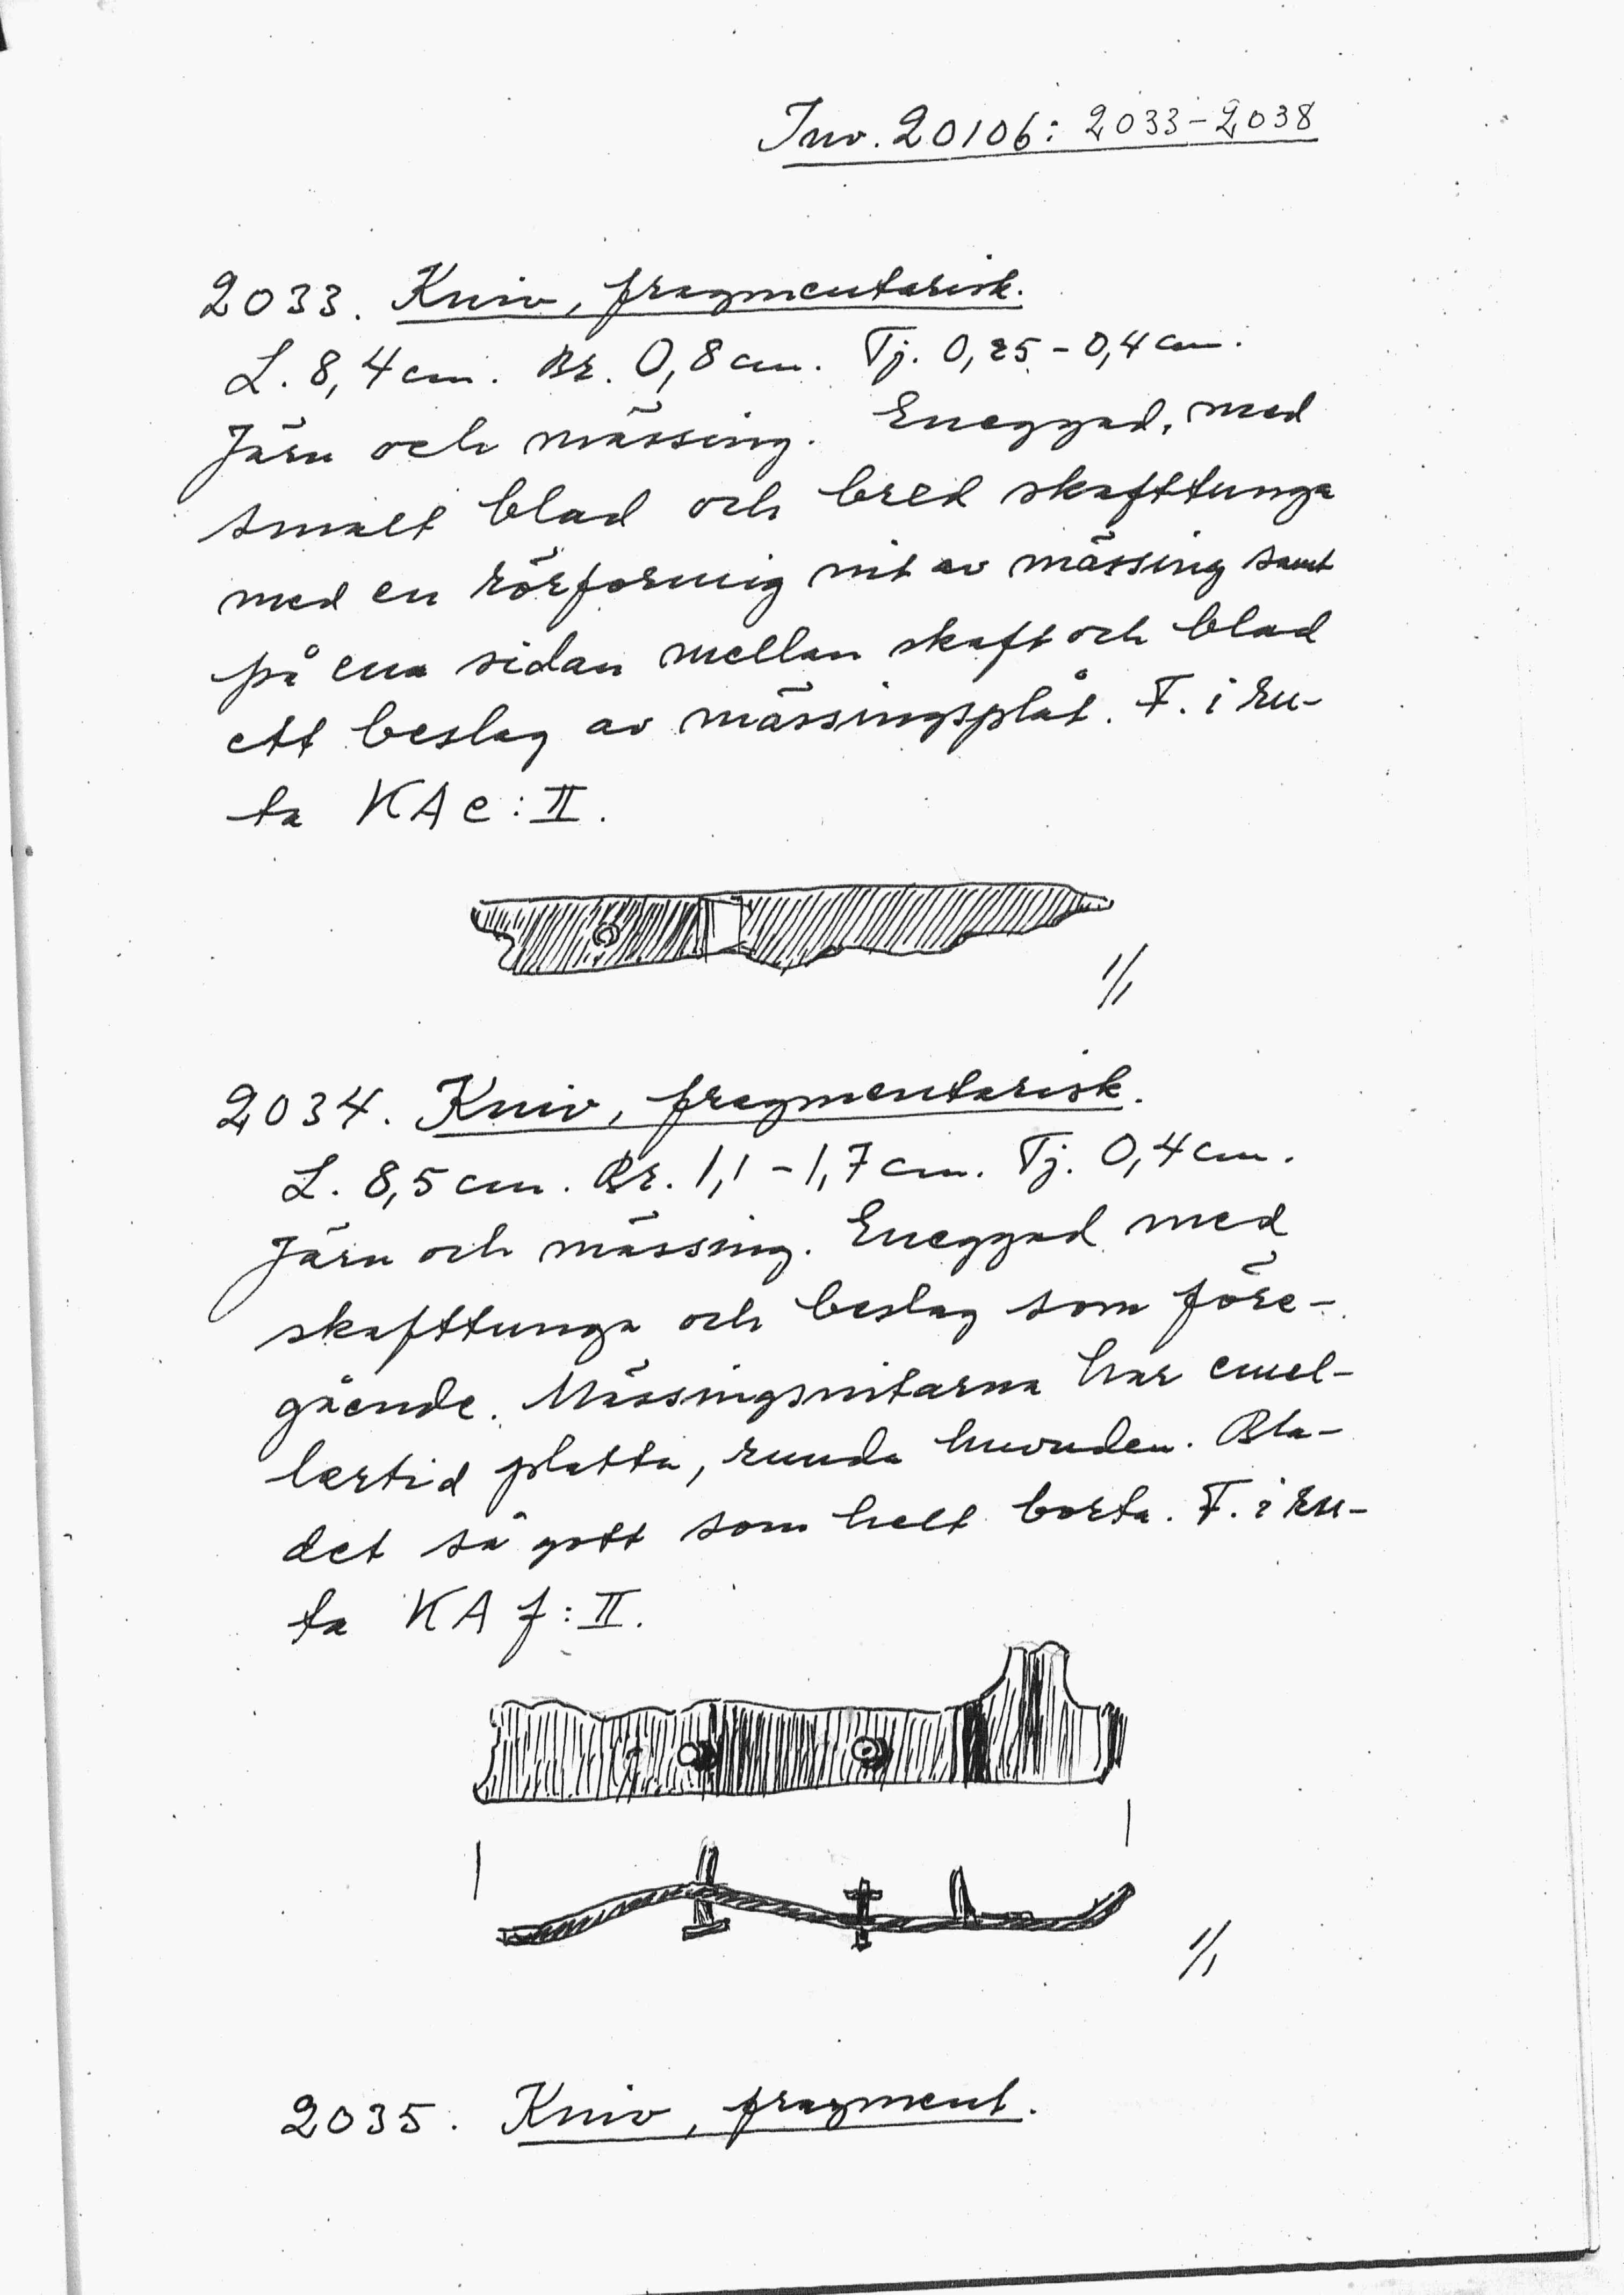 Inv. 20106: 2033-2038
2033. Kniv, fragmentarisk.
L. 8,4 cm. Br. 0,8 cm. Tj. 0,25-0,4 cm.
Järn och mässing. Eneggad, med
smalt blad och bred skafttunga
med en rörformig nit av mässing samt
på ena sidan mellan skaft och blad
ett beslag av mässingsplåt. F. i ru-
ta KA e:II.
1/1
2034. Kniv, fragmentarisk.
L. 8,5 cm. Br. 1,1-1,7 cm. Tj. 0,4 cm.
Järn och mässing. Eneggad med
skafttunga och beslag som före-
gående. Mässingsnitarna har emel-
lertid platta, runda huvuden. Bla-
det så gott som helt borta. F. i ru-
ta KA f:II.
1/1
2035. Kniv, fragment.